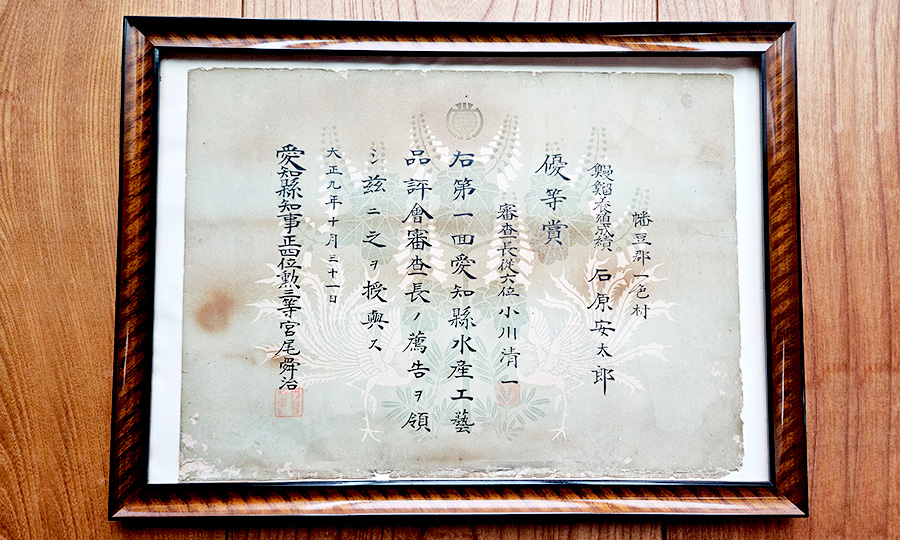 幡豆郡一色村
鰻鯔養殖成績 石原安太郎
優等賞
審査長從六位 小川清一
右第一回愛知縣水産工藝
品評會審査長ノ薦告ヲ領
シ茲ニ之ヲ授與ス
大正九年十月三十一日
愛知縣知事正四位勲三等宮尾舜治